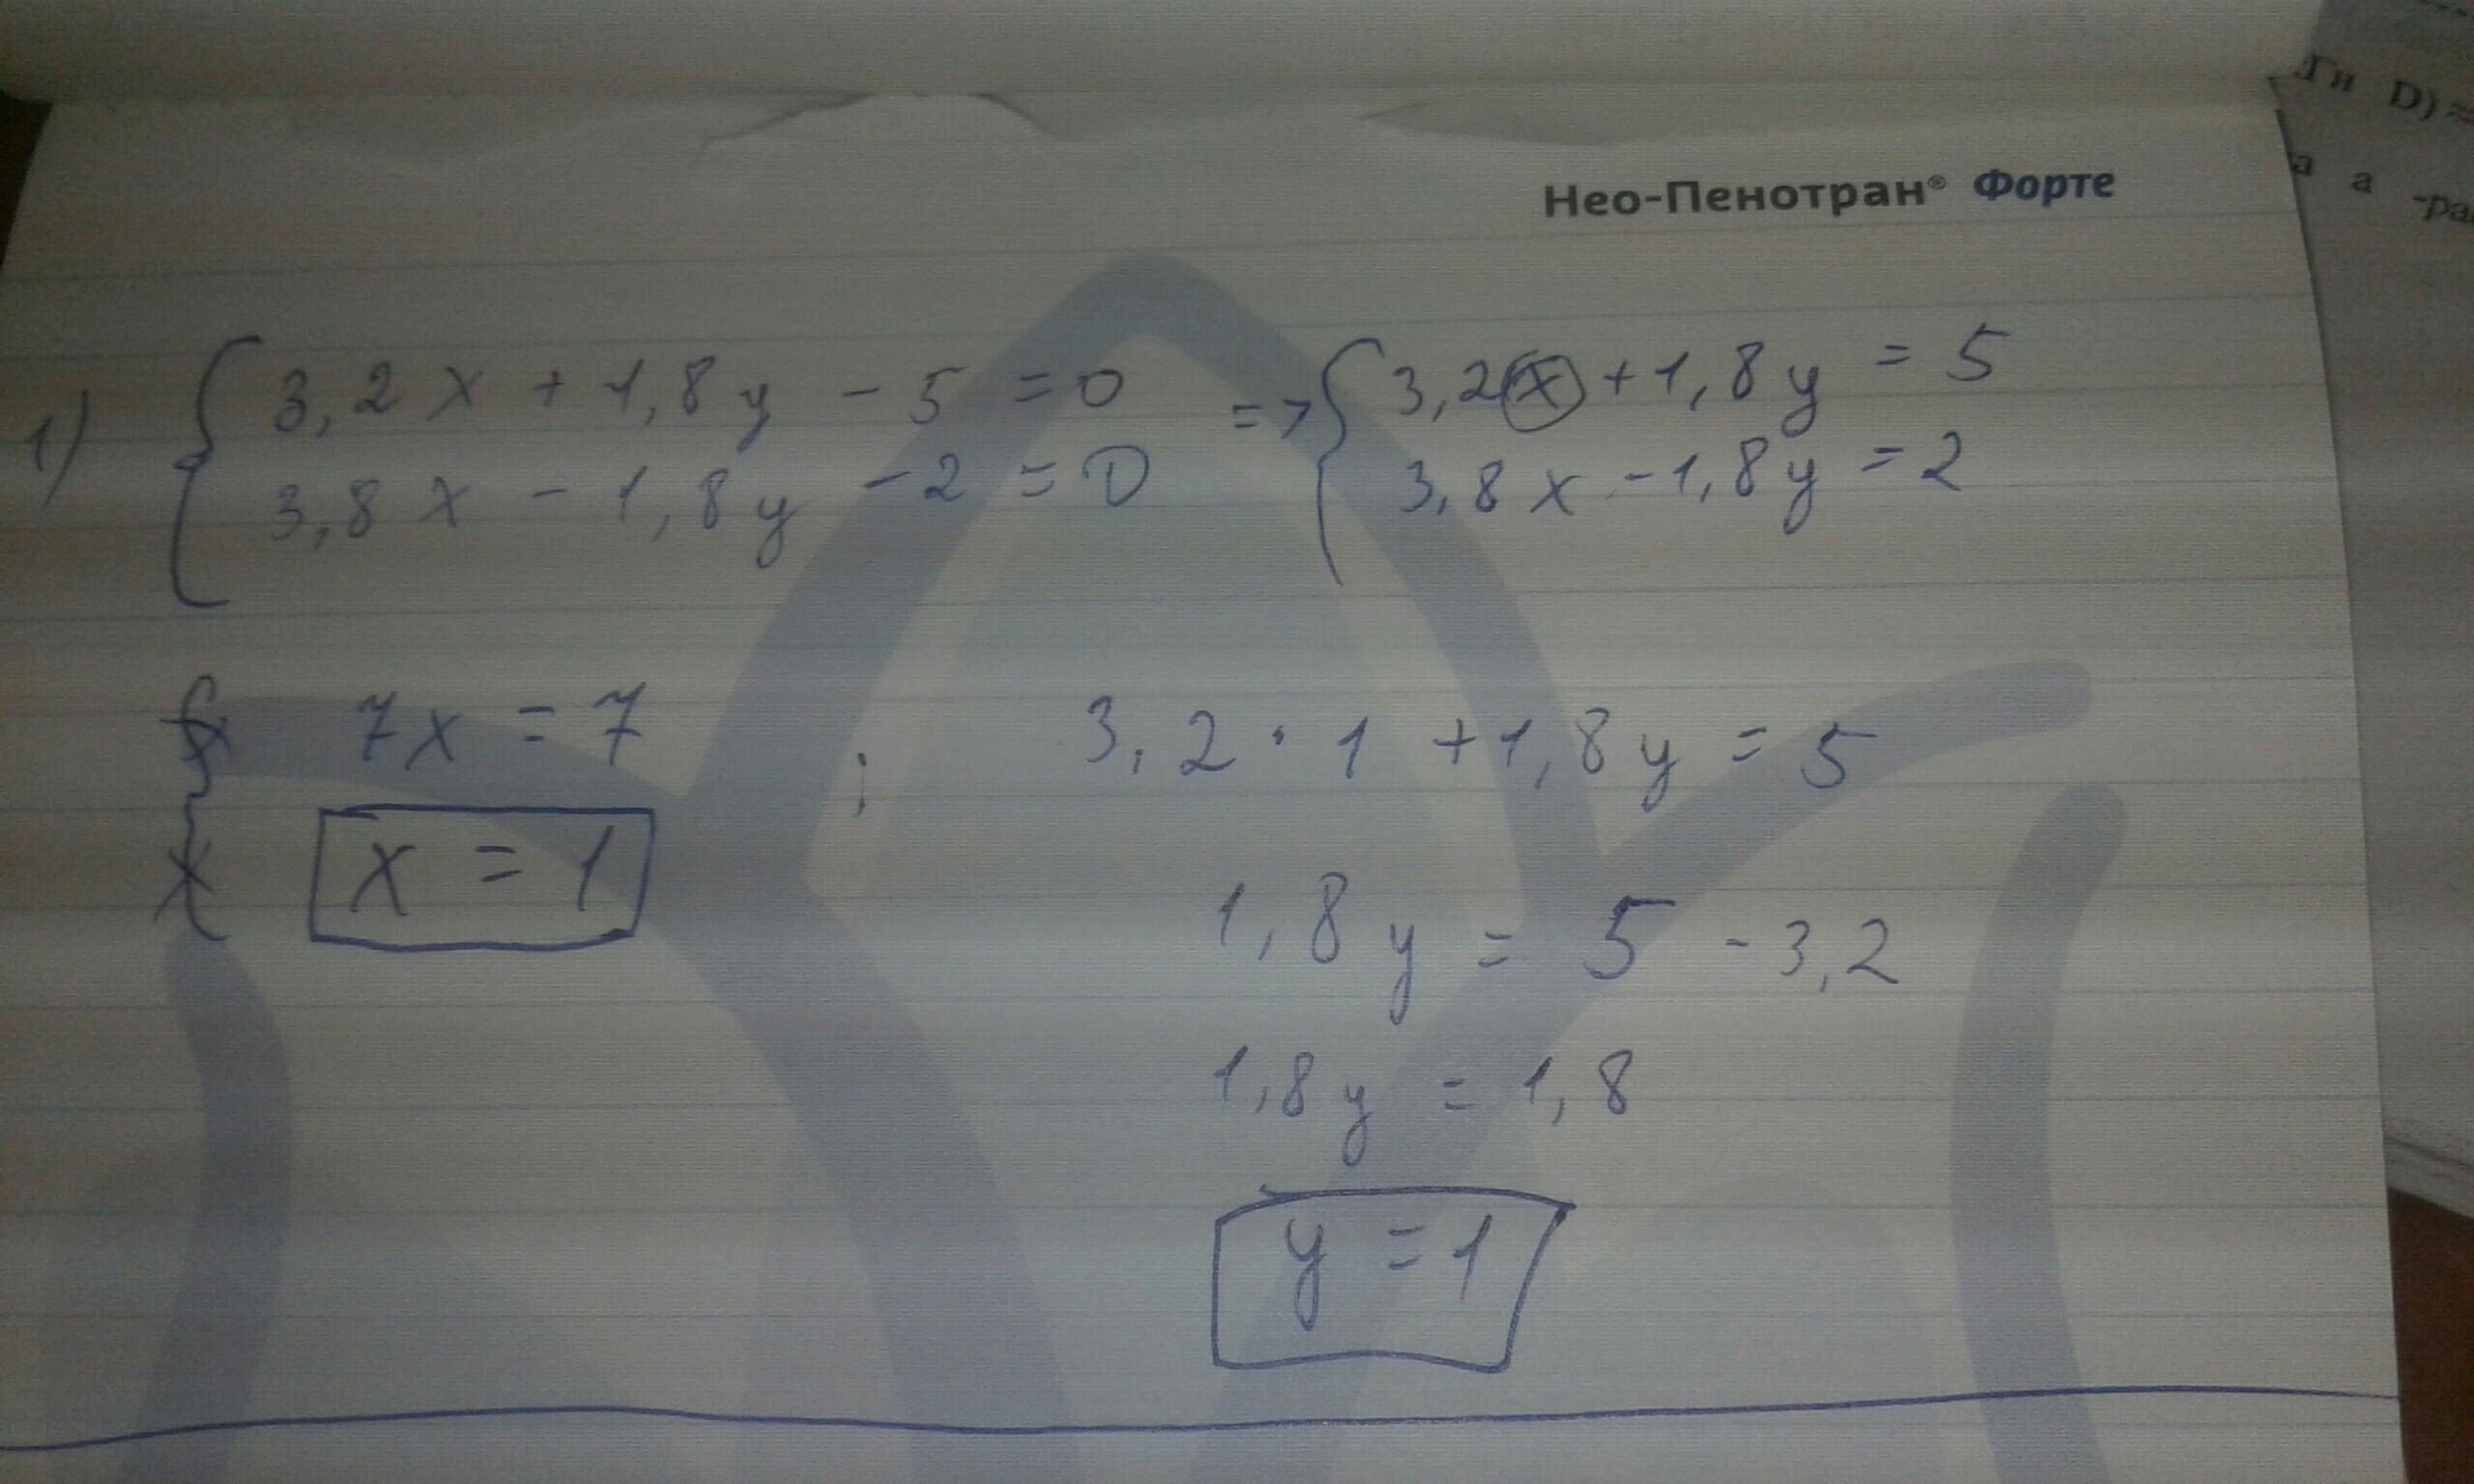 Гн D) ≈
а а -ра
Нео-Пенотран® Форте
1) { 3,2x + 1,8y - 5 = 0 => { 3,2x + 1,8y = 5
3,8x - 1,8y - 2 = 0 3,8x - 1,8y = 2
7x = 7 ; 3,2 · 1 + 1,8y = 5
x = 1
1,8y = 5 - 3,2
1,8y = 1,8
y = 1